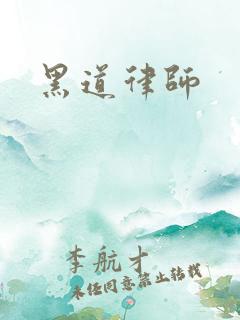 黑道律師
李航才
未經同意禁止轉載